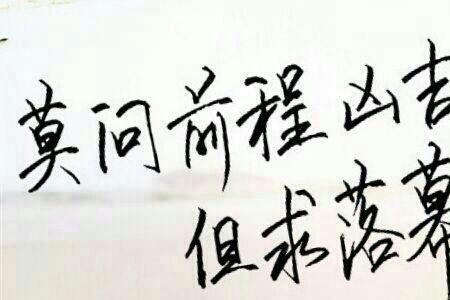 莫问前程凶吉
但求落幕